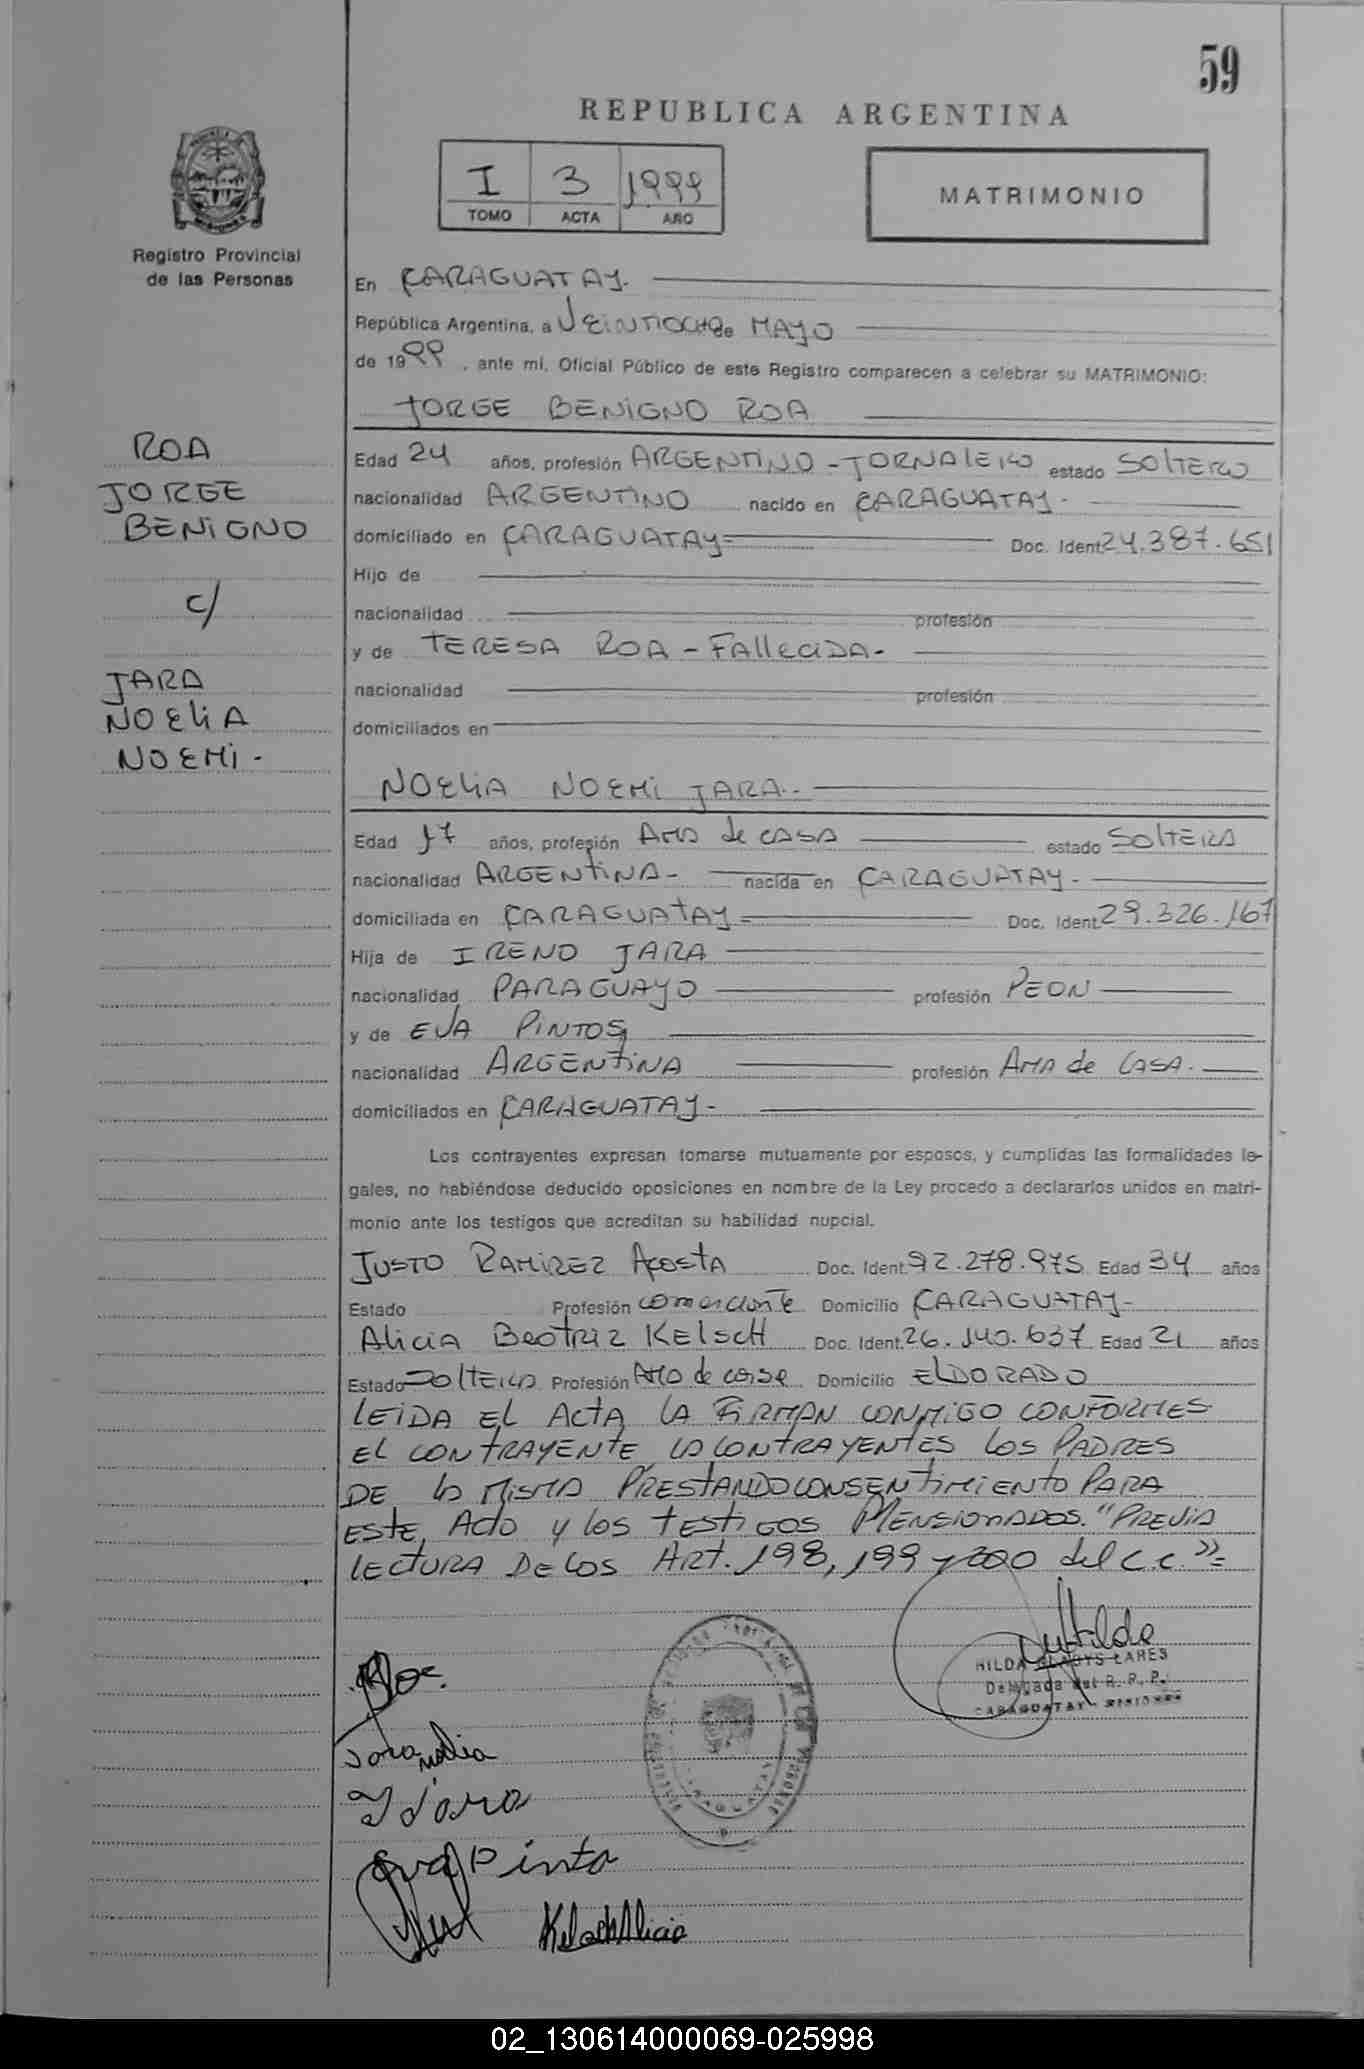 59
REPUBLICA ARGENTINA
I 3 1999
TOMO ACTA AÑO
MATRIMONIO
Registro Provincial
de las Personas
En CARAGUATAY.
República Argentina, a VEINTIOCHO de MAYO
de 1999, ante mí, Oficial Público de este Registro comparecen a celebrar su MATRIMONIO:
JORGE BENIGNO ROA
ROA
JORGE
BENIGNO
c/
JARA
NOELIA
NOEMI.-
Edad 24 años, profesión ARGENTINO - JORNALERO estado SOLTERO
nacionalidad ARGENTINO nacido en CARAGUATAY-
domiciliado en CARAGUATAY= Doc. Ident. 24.387.651
Hijo de
nacionalidad profesión
y de TERESA ROA - FALLECIDA-
nacionalidad profesión
domiciliados en
NOELIA NOEMI JARA.-
Edad 17 años, profesión AMA de CASA estado SOLTERA
nacionalidad ARGENTINA- nacida en CARAGUATAY-
domiciliada en CARAGUATAY= Doc. Ident. 29.326.167
Hija de IRENO JARA
nacionalidad PARAGUAYO profesión PEON
y de EVA PINTOS
nacionalidad ARGENTINA profesión AMA de CASA.
domiciliados en CARAGUATAY-
Los contrayentes expresan tomarse mutuamente por esposos, y cumplidas las formalidades le-
gales, no habiéndose deducido oposiciones en nombre de la Ley procedo a declararlos unidos en matri-
monio ante los testigos que acreditan su habilidad nupcial.
JUSTO RAMIREZ ACOSTA Doc. Ident. 92.278.975 Edad 34 años
Estado Profesión comerciante Domicilio CARAGUATAY-
ALICIA BEATRIZ KELSCH Doc. Ident. 26.140.637 Edad 21 años
Estado SOLTERA Profesión AMA de casa Domicilio ELDORADO
LEIDA EL ACTA LA FIRMAN CONMIGO CONFORMES
EL CONTRAYENTE LA CONTRAYENTES LOS PADRES
DE LA MISMA PRESTANDO CONSENTIMIENTO PARA
ESTE ACTO Y LOS TESTIGOS MENSIONADOS. "PREVIA
LECTURA DE LOS ART. 198, 199 y 200 del C.C."=
HILDA GLADYS LARES
Delegada del R. P. P.
CARAGUATAY - MISIONES
Jara Noelia
I Jara
Eva Pinto
Kelsch Alicia
02_130614000069-025998